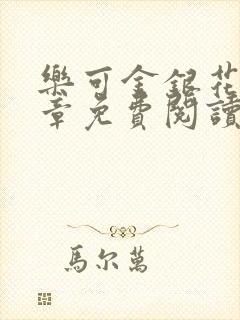 樂可金銀花
章免費閱讀
馬尔萬